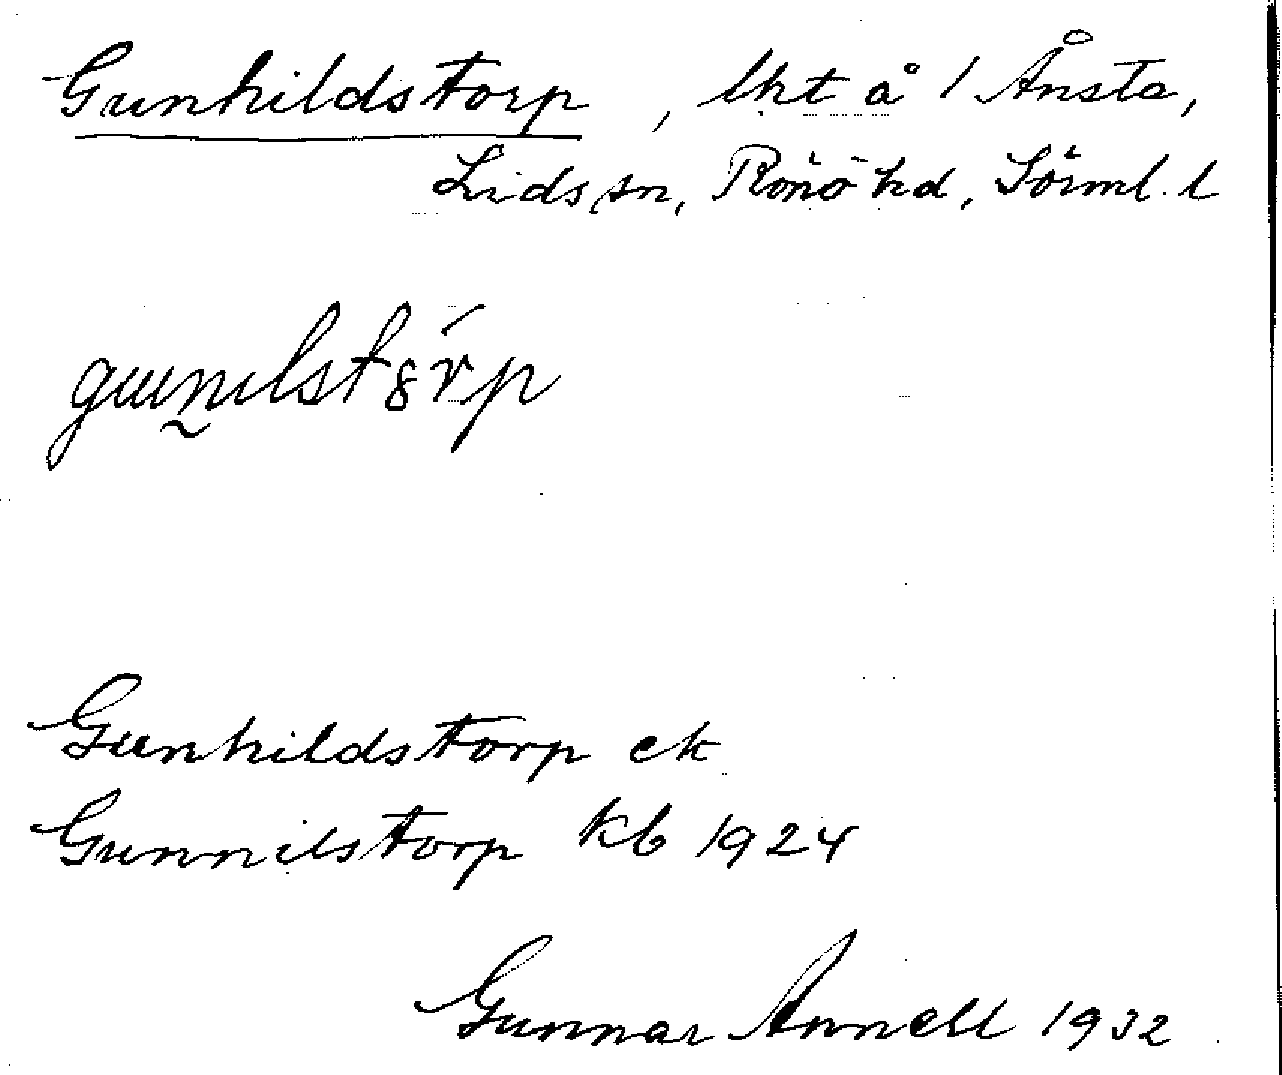 Gunhildstorp, lht å 1 Ånsta,
Lids sn, Rönö hd, Sörml. l
gunilstȣ́rp
Gunhildstorp ek
Gunnilstorp kb 1924
Gunnar Annell 1932